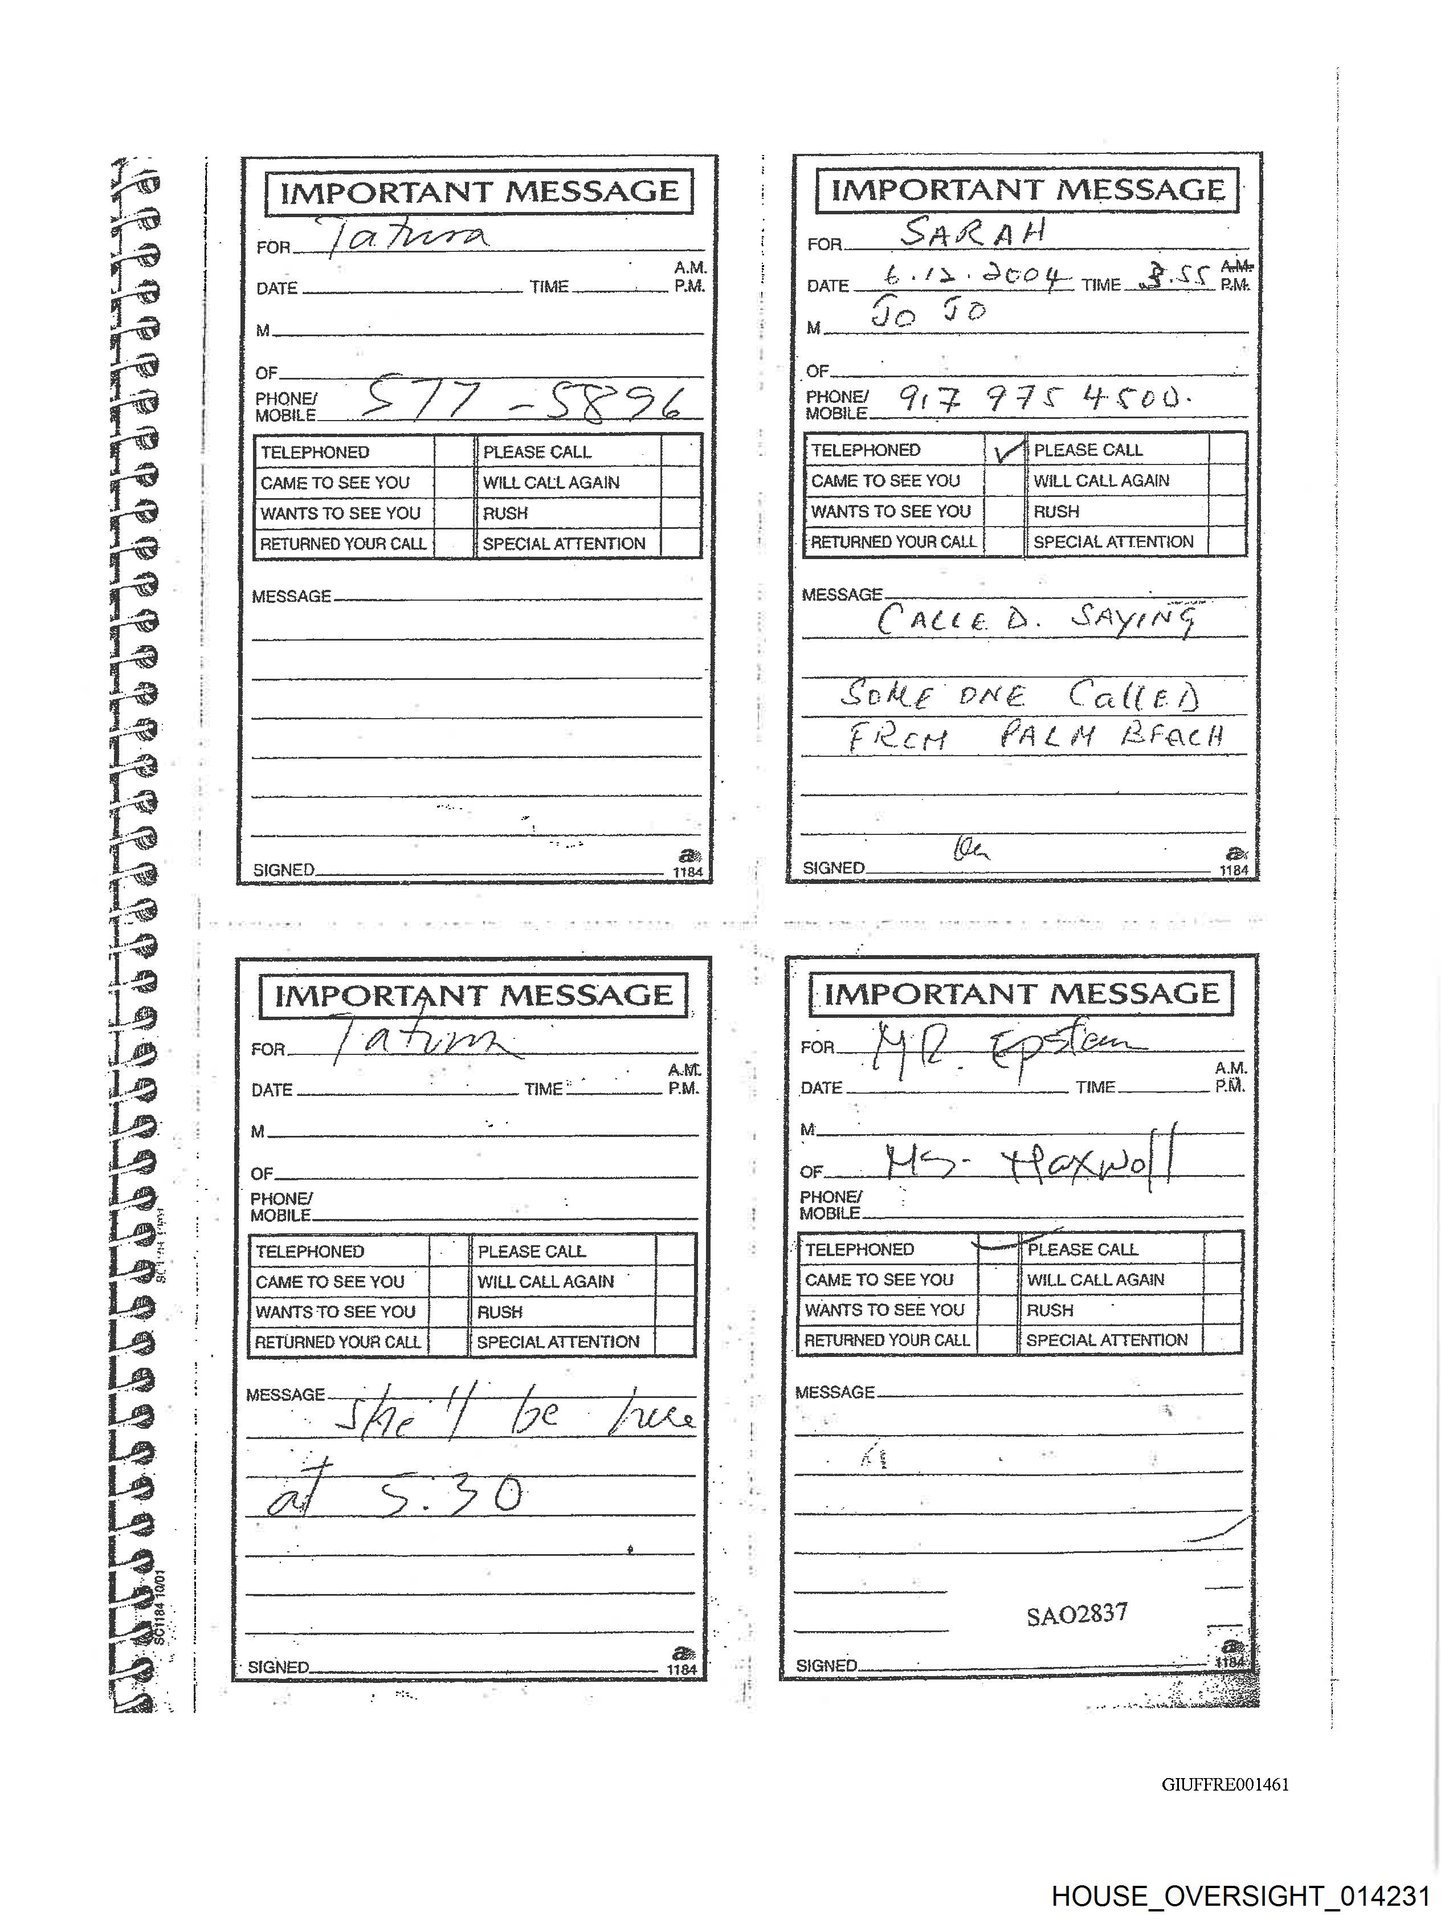 IMPORTANT MESSAGE
FOR Tatum
DATE TIME A.M. P.M.
M
OF
PHONE/ MOBILE 577-5896
TELEPHONED PLEASE CALL
CAME TO SEE YOU WILL CALL AGAIN
WANTS TO SEE YOU RUSH
RETURNED YOUR CALL SPECIAL ATTENTION
MESSAGE
SIGNED
a
1184
IMPORTANT MESSAGE
FOR SARAH
DATE 6.12.2004 TIME 3.55 A.M. P.M.
M JO JO
OF
PHONE/ MOBILE 917 975 4500.
TELEPHONED ✓ PLEASE CALL
CAME TO SEE YOU WILL CALL AGAIN
WANTS TO SEE YOU RUSH
RETURNED YOUR CALL SPECIAL ATTENTION
MESSAGE
CALLED. SAYING
SOME ONE CallED
FROM PALM BEACH
SIGNED
a
1184
IMPORTANT MESSAGE
FOR Tatum
DATE TIME A.M. P.M.
M
OF
PHONE/ MOBILE
TELEPHONED PLEASE CALL
CAME TO SEE YOU WILL CALL AGAIN
WANTS TO SEE YOU RUSH
RETURNED YOUR CALL SPECIAL ATTENTION
MESSAGE
she'll be here
at 5:30
SIGNED
a
1184
IMPORTANT MESSAGE
FOR MR. Epstein
DATE TIME A.M. P.M.
M
OF Ms. Maxwell
PHONE/ MOBILE
TELEPHONED ✓ PLEASE CALL
CAME TO SEE YOU WILL CALL AGAIN
WANTS TO SEE YOU RUSH
RETURNED YOUR CALL SPECIAL ATTENTION
MESSAGE
SAO2837
SIGNED
a
1184
SC1184 10/01
GIUFFRE001461
HOUSE_OVERSIGHT_014231